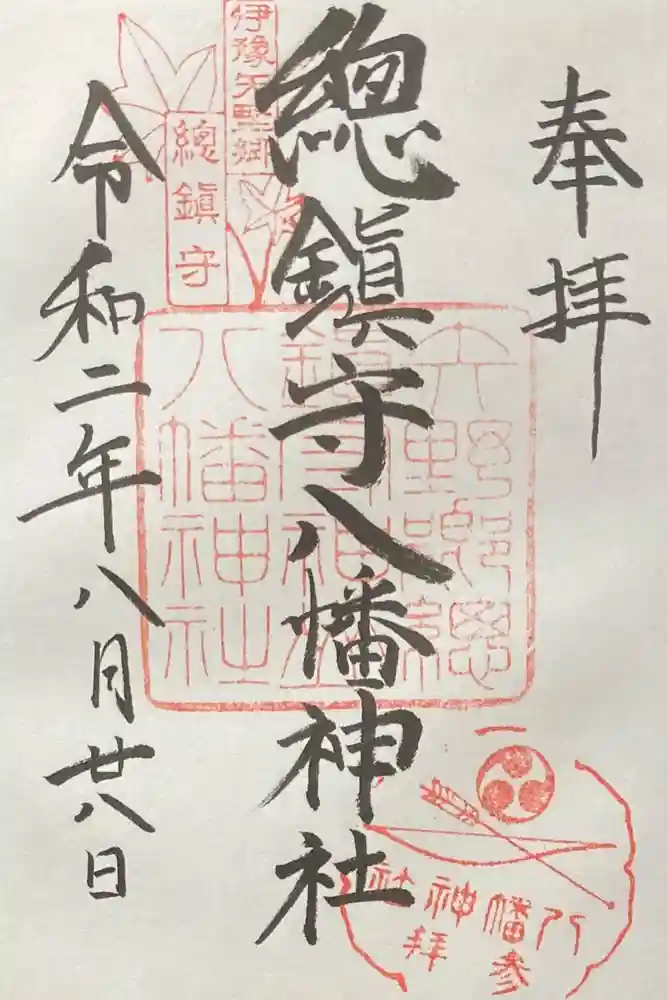 奉拝
總鎮守八幡神社
伊豫矢野郷
總鎮守
八幡神社
令和二年八月廿八日
八幡神社
参拝